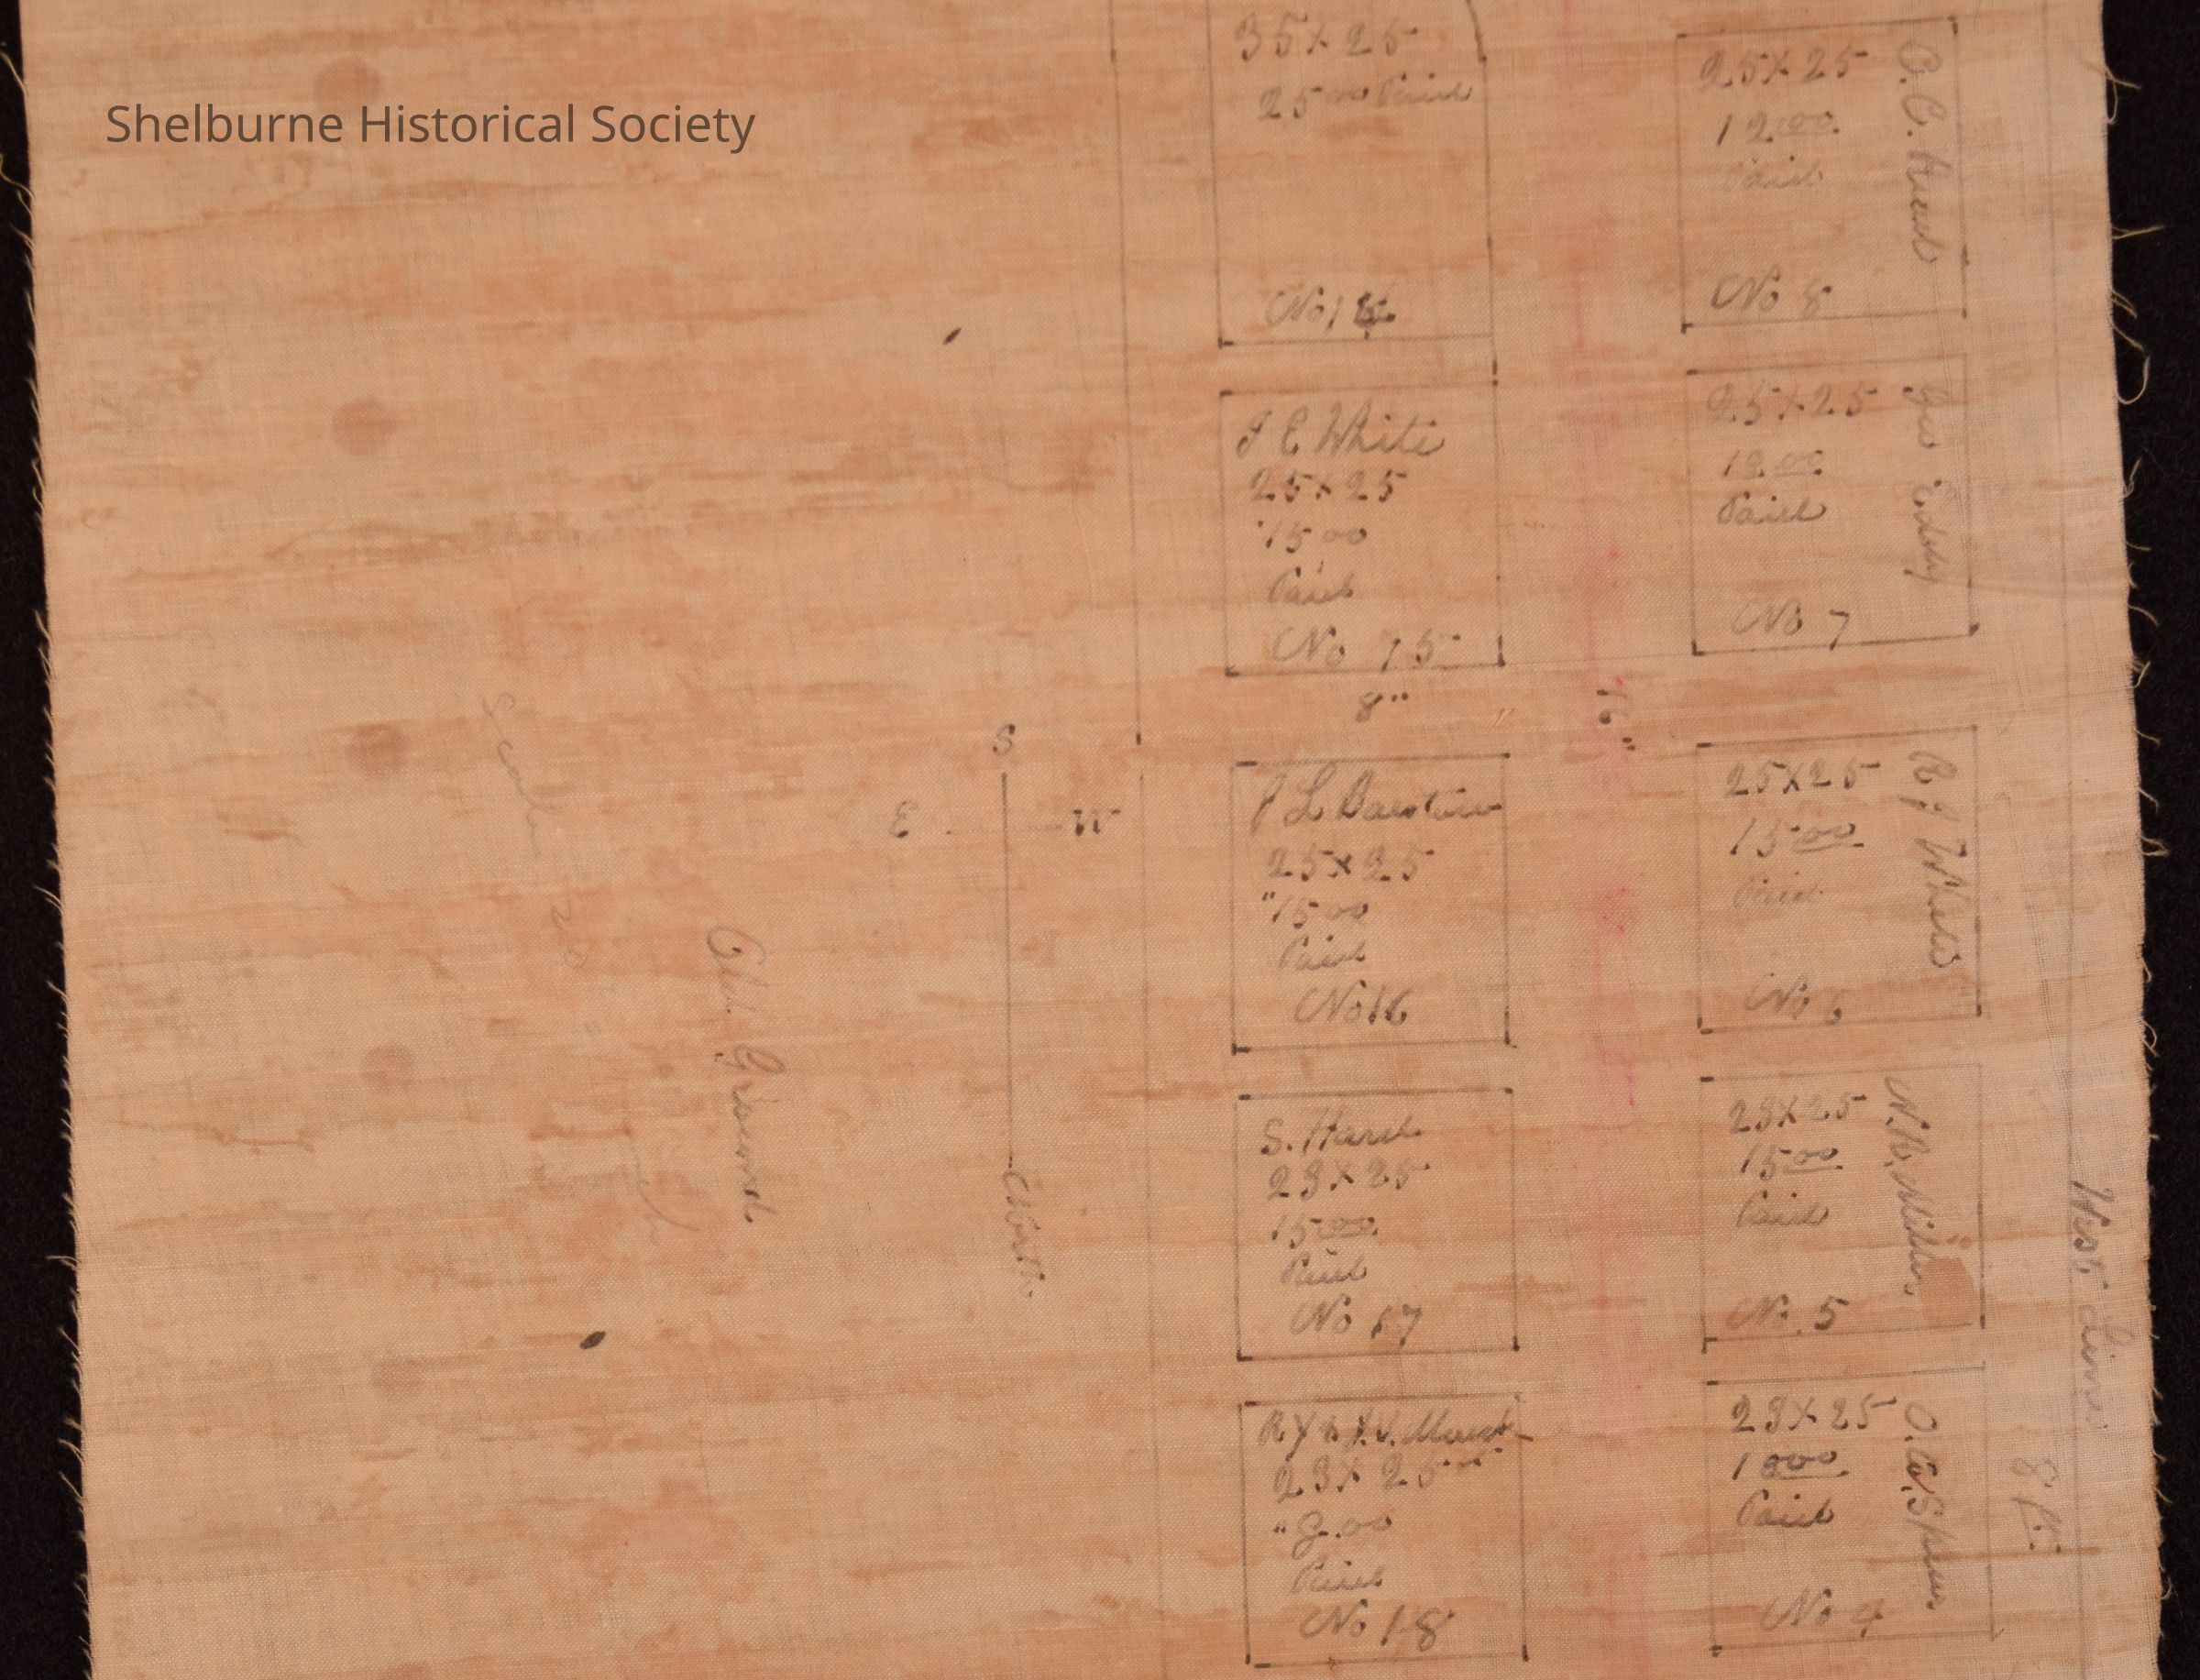 Shelburne Historical Society
35 x 25
25 00 Paid
No 14
J E White
25 x 25
15 00
Paid
No 15
8"
J L Barstow
25 x 25
"15 00
Paid
No 16
S. Hard
23 x 25
15 00
Paid
No 17
23 x 25
Paid
No 18
16"
25 x 25
12.00
Paid
No 8
Geo Eddy
25 x 25
12.00
Paid
No 7
R J White
25 x 25
15 00
Paid
No 6
23 x 25
15 00
Paid
No. 5
O. C. Spear
23 x 25
10 00
Paid
No 4
West Line
8 ft.
S
E
W
North
Old Ground
Scale 20